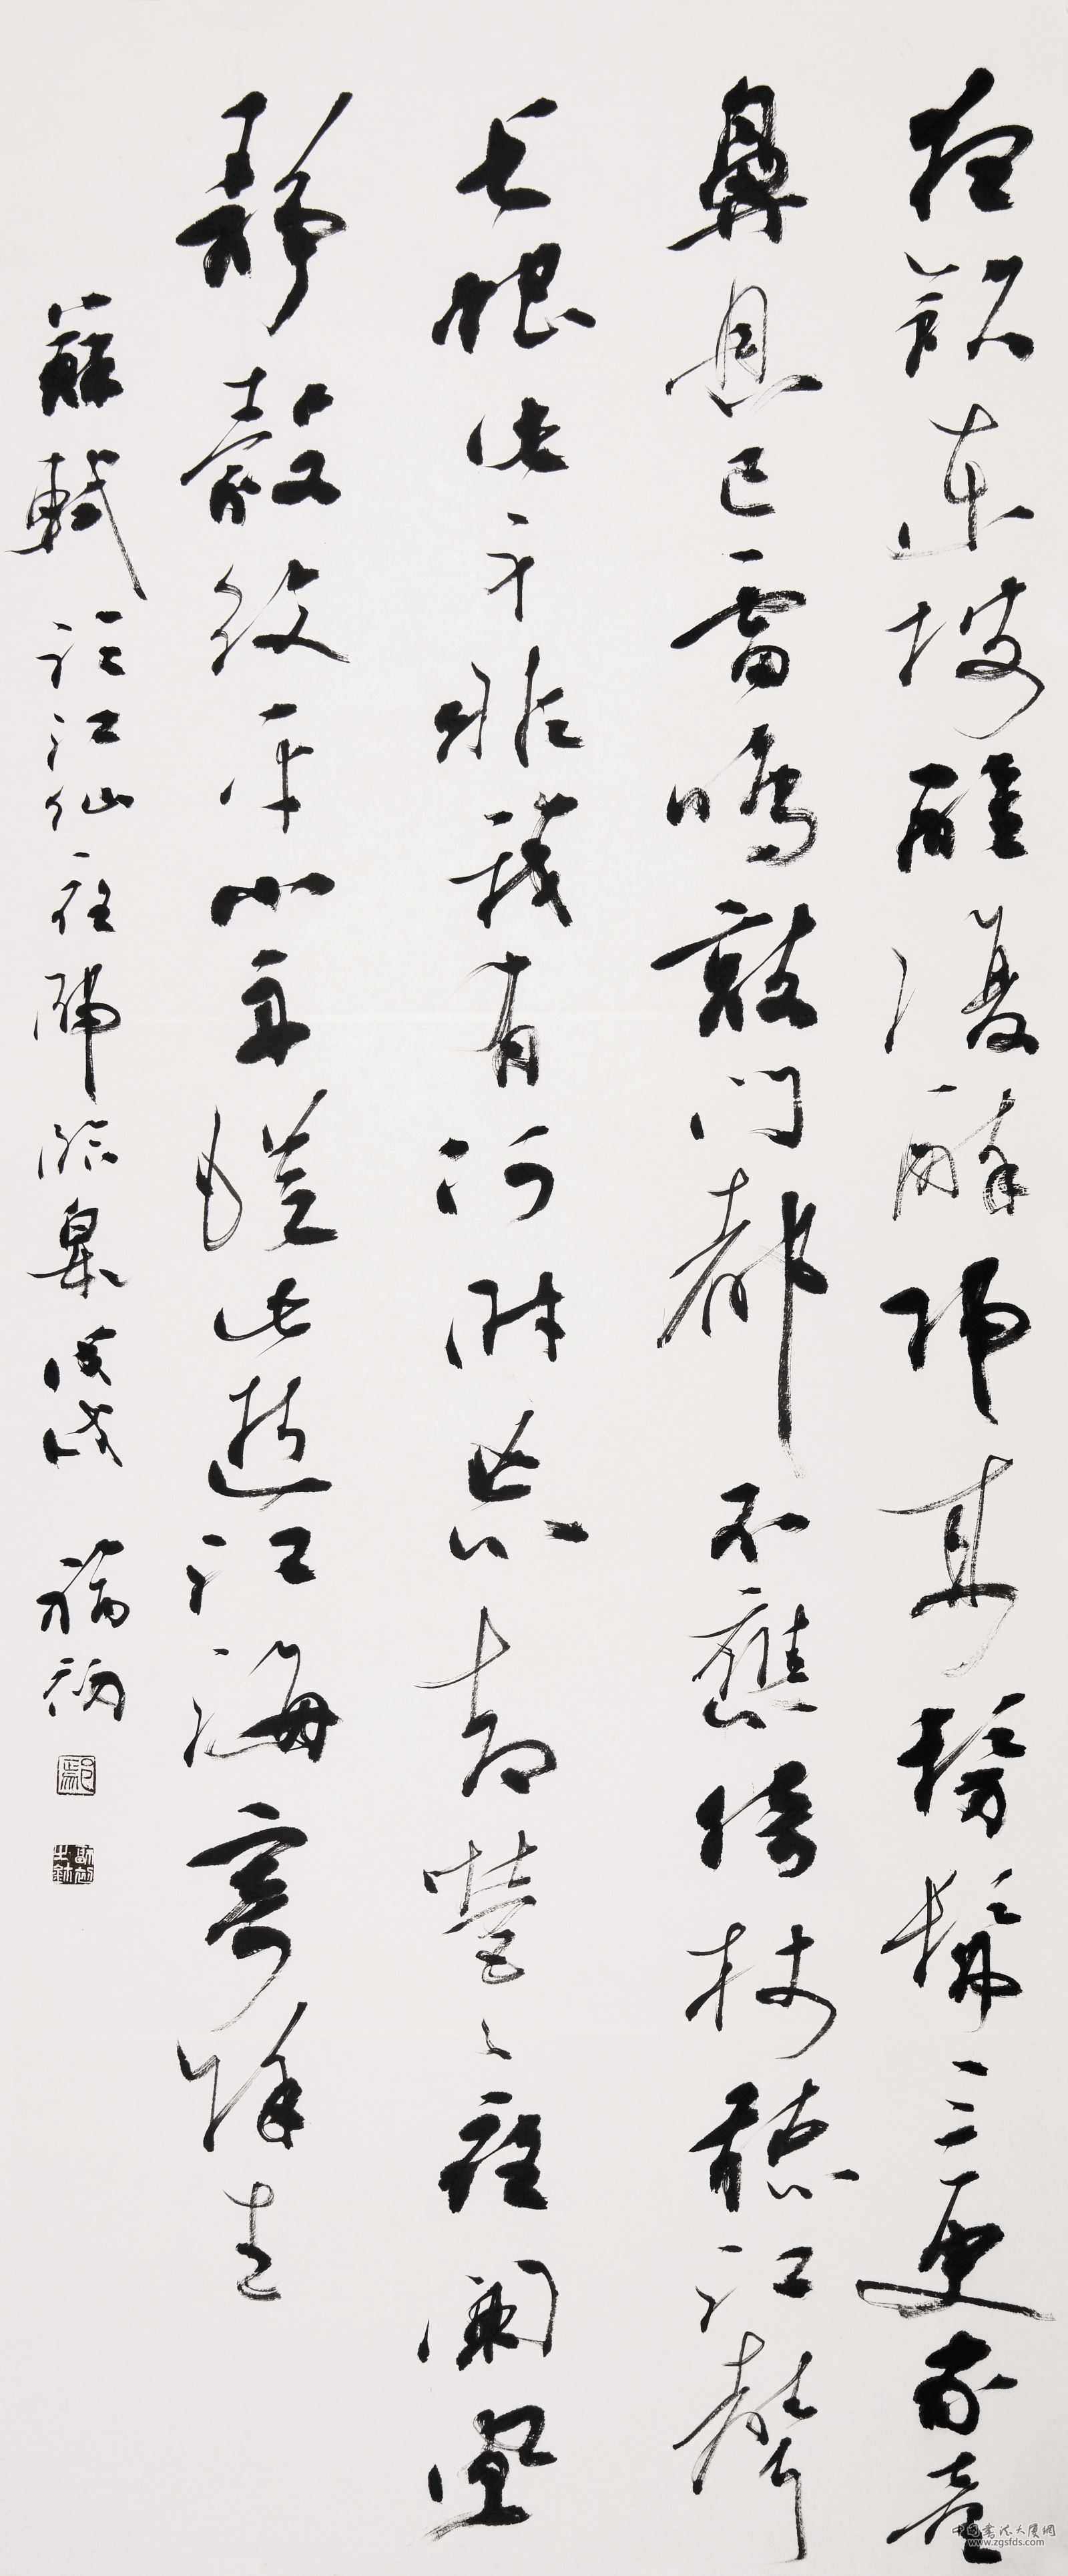 夜飲東坡醒復醉歸來髣髴三更家童
鼻息已雷鳴敲門都不應倚杖聽江聲
長恨此身非我有何時忘却營〻夜闌風
靜縠紋平小舟從此逝江海寄餘生
蘇軾臨江仙夜歸臨皋戊戌 福初
鄢
福初之鉥
中国书法大厦网
www.zgsfds.com